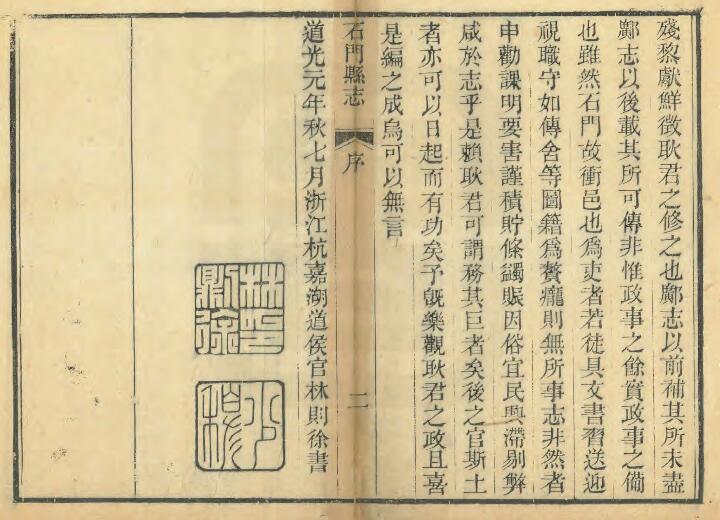 殘黎獻鮮徵耿君之修之也鄺志以前補其所未盡
鄺志以後載其所可傳非惟政事之餘實政事之備
也雖然石門故衝邑也為吏者若徒具文書習送迎
視職守如傳舍等圖籍為贅疣則無所事志非然者
申勸課明要害謹積貯條蠲賑因俗宜民興滯剔弊
咸於志乎是賴耿君可謂務其巨者矣後之官斯土
者亦可以日起而有功矣予旣樂觀耿君之政且喜
是編之成烏可以無言
石門縣志
序
二
道光元年秋七月浙江杭嘉湖道侯官林則徐書
林印
則徐
少穆